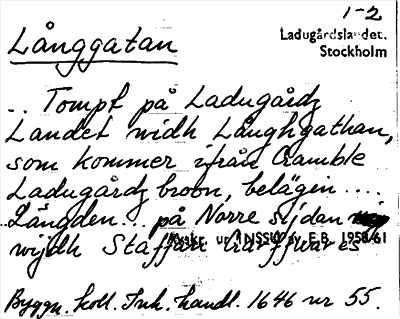 1-2
Långgatan
Ladugårdslandet.
Stockholm
.. Tompt på Ladugårdz
Landet widh Långhgathan,
som kommer ifrån Gamble
Ladugårdz broon, belägin ....
Längden... på Norre sijdan
wijdh Staffan
INSSU av E.B. 1958-61
Byggn. koll. Ink. handl. 1646 nr 55.